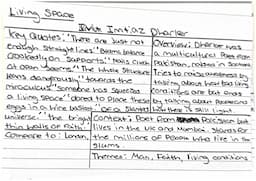 Living Space
Imtiaz Dharker
Key Quotes: "There are just not
enough straight lines" "Beams balance
crookedly on supports" "Nails clutch
at open seams" "The whole structure
leans dangerously" "towards the
miraculous" "someone has squeezed
a living space" "dared to place these
eggs in a wire basket" "of a slanted
universe" "the bright
thin walls of faith"
Overview: Dharker was
a multicultural Poet from
Pakistan, raised in
Tries to raise awareness by
talking about how bad living
conditions are but ends
by talking about
how there is still light
Context: Poet from Pakistan but
lives in the UK and Mumbai. Stands for
the millions of People who live in
slums.
Themes: Man, Faith, living conditions